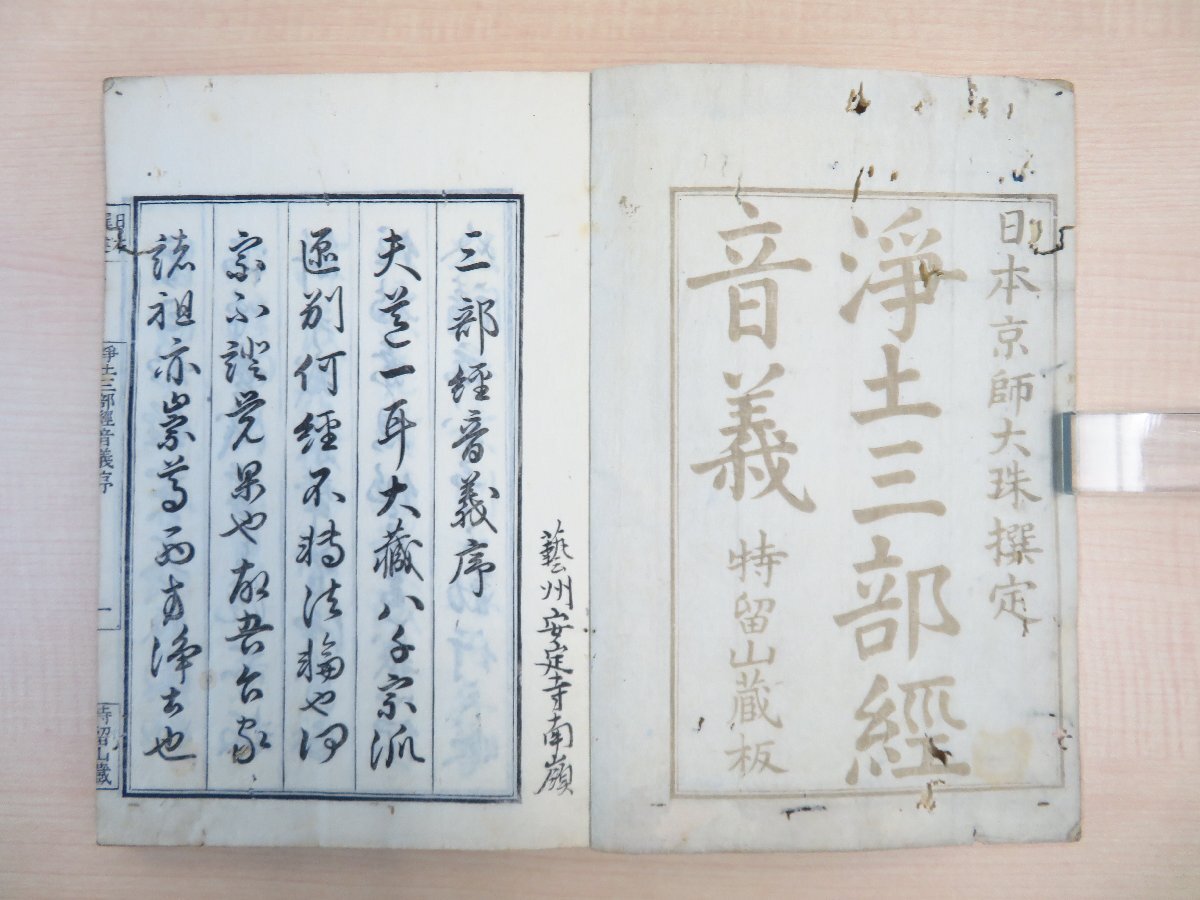 日本京師大珠撰定
淨土三部經
音義
特留山蔵板
藝州安定寺南嶺
三部經音義序
夫道一耳大藏八千宗派
區別何經不轉法輪也何
宗不證覺果也故吾台家
諸祖亦崇尊西方淨土也
日本
淨土三部經音義序
一
特留山藏